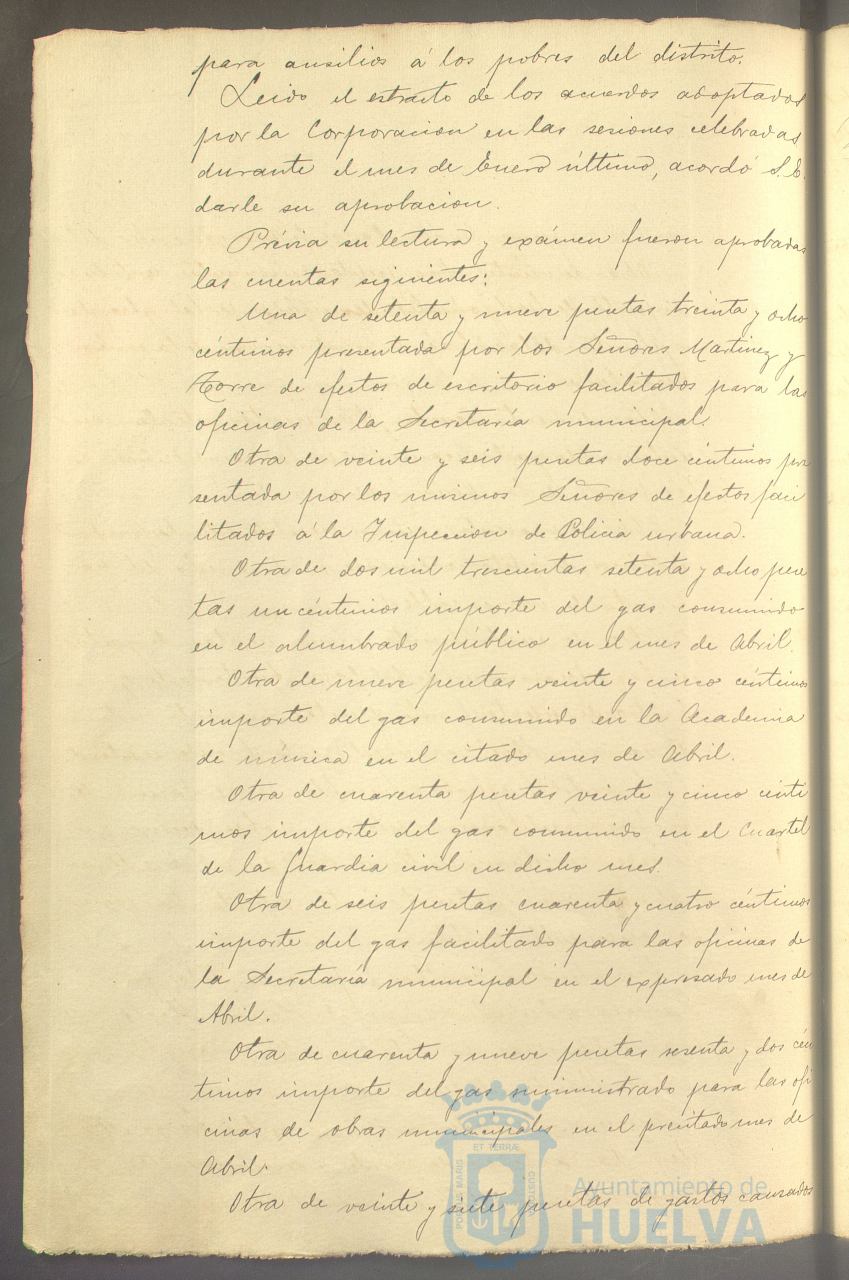 para ausilios á los pobres del distrito.
Leido el estracto de los acuerdos adoptados
por la Corporacion en las sesiones celebradas
durante el mes de Enero último, acordó S.E.
darle su aprobacion.
Prévia su lectura y exámen fueron aprobadas
las cuentas siguientes:
Una de setenta y nueve pesetas treinta y ocho
céntimos presentada por los Señores Martinez y
Torre de efectos de escritorio facilitados para las
oficinas de la Secretaría municipal.
Otra de veinte y seis pesetas doce céntimos pre
sentada por los mismos Señores de efectos faci
litados á la Inspeccion de Policia urbana.
Otra de dos mil trescientas setenta y ocho pese
tas un céntimos importe del gas consumido
en el alumbrado público en el mes de Abril.
Otra de nueve pesetas veinte y cinco céntimos
importe del gas consumido en la Academia
de música en el citado mes de Abril.
Otra de cuarenta pesetas veinte y cinco cénti
mos importe del gas consumido en el Cuartel
de la Guardia civil en dicho mes.
Otra de seis pesetas cuarenta y cuatro céntimos
importe del gas facilitado para las oficinas de
la Secretaría municipal en el expresado mes de
Abril.
Otra de cuarenta y nueve pesetas sesenta y dos cén
timos importe del gas suministrado para las ofi
cinas de obras municipales en el precitado mes de
Abril.
Otra de veinte y siete pesetas de gastos causados
PORTUS MARIS ET TERRÆ CUSTODIA
Ayuntamiento de
HUELVA